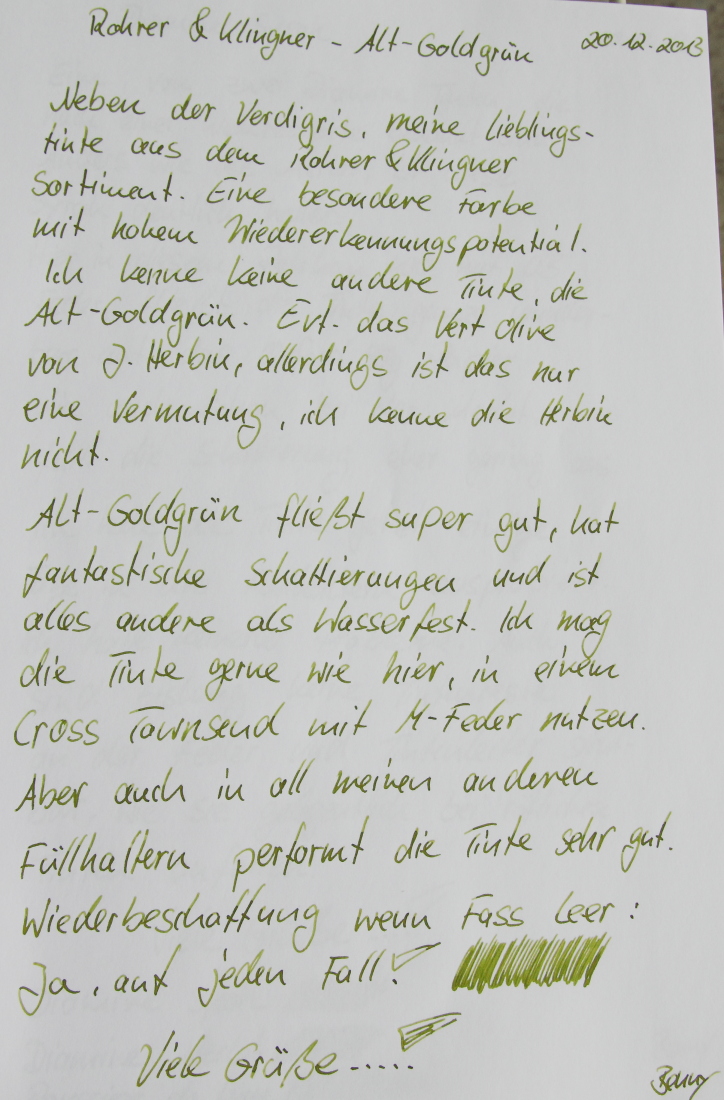 Rohrer & Klingner - Alt-Goldgrün 20.12.2013
Neben der Verdigris, meine Lieblings-
tinte aus dem Rohrer & Klingner
Sortiment. Eine besondere Farbe
mit hohem Wiedererkennungspotential.
Ich kenne keine andere Tinte, die
Alt-Goldgrün. Evt. das Vert Olive
von J. Herbin, allerdings ist das nur
eine Vermutung, ich kenne die Herbin
nicht.
Alt-Goldgrün fließt super gut, hat
fantastische Schattierungen und ist
alles andere als Wasserfest. Ich mag
die Tinte gerne wie hier, in einem
Cross Townsend mit M-Feder nutzen.
Aber auch in all meinen anderen
Füllhaltern performt die Tinte sehr gut.
Wiederbeschaffung wenn Fass leer:
Ja, auf jeden Fall!
Viele Grüße.....
Benny